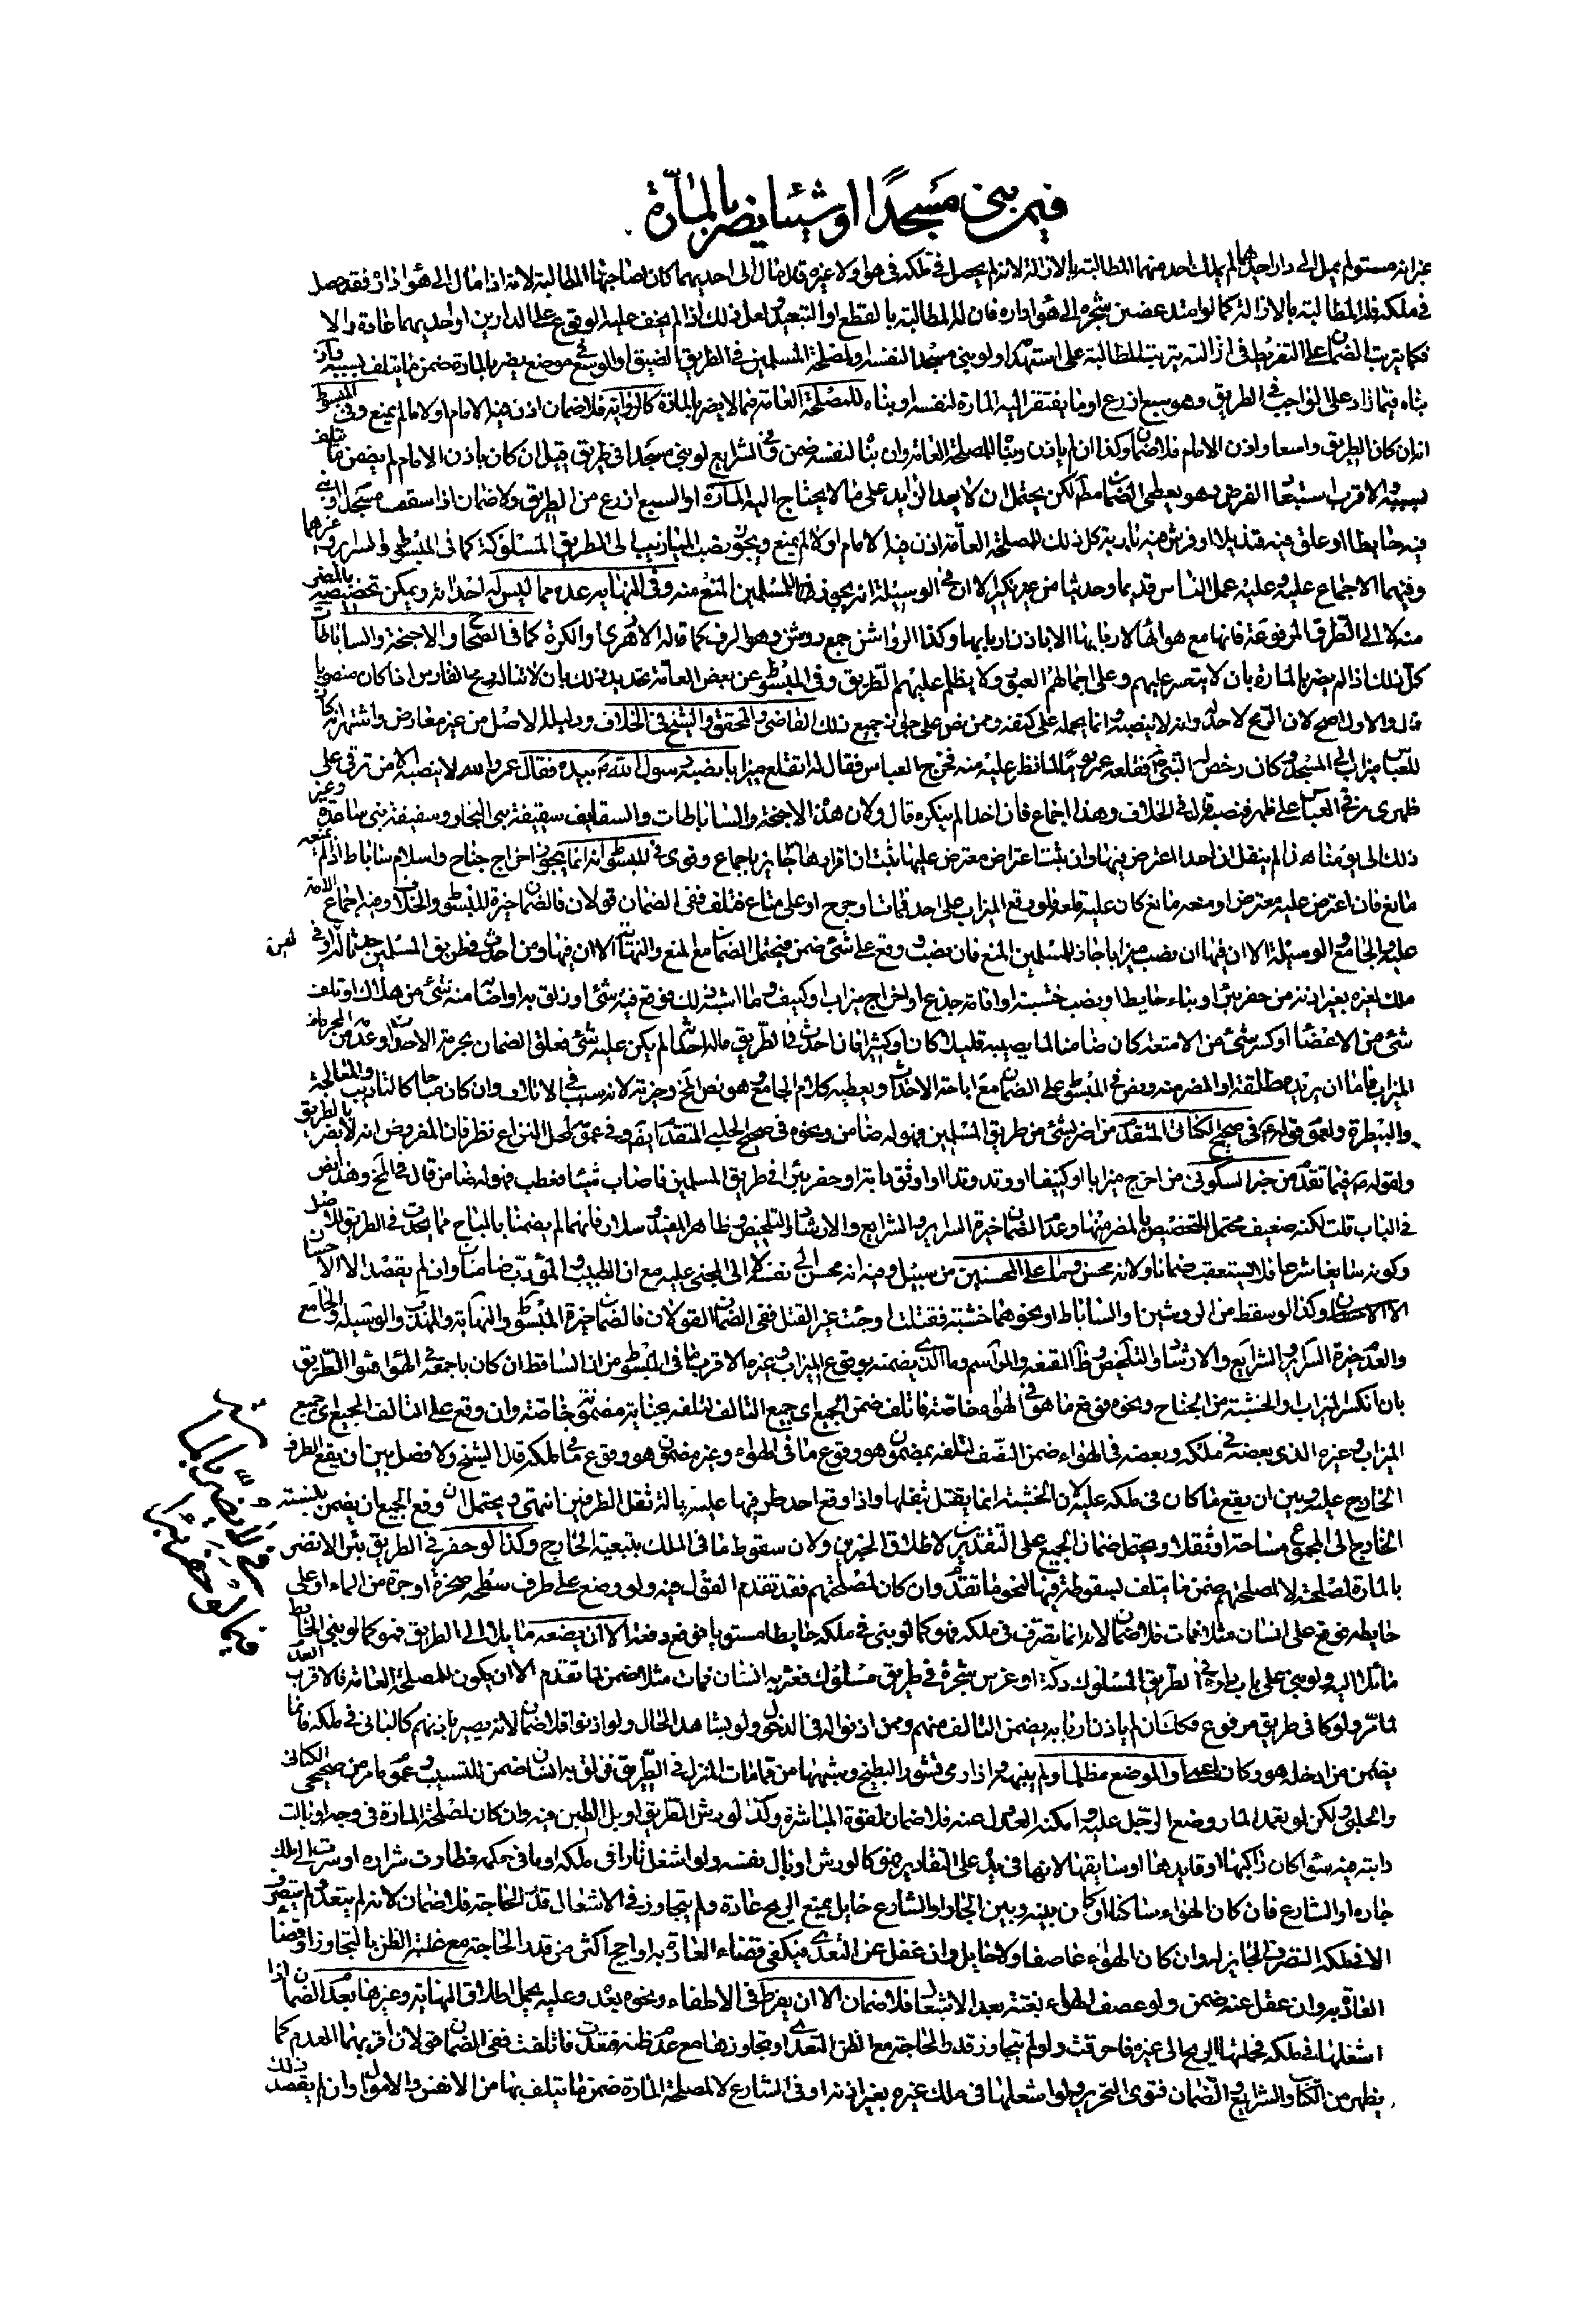 فيمن بنى مسجدًا او شيئا يضر بالمارّة
غير انه مستو لم يميل الى دار احدهما لم يملك احد منهما المطالبته بالازالة لانه لم يحصل في ملكه في هواء ولا غيره فان مال الى احديهما كان لصاحبها المطالبة لانه اذا مال الى هواء داره فقد حصل
في ملكه فله المطالبته بالازالة كما لو امتد غصن شجره الى هواء داره فان له المطالبته بالقطع او التبعيد ولعل ذلك اذا لم يخف عليه الوقوع على الدارين او احديهما عادة والا
فكما يترتب الضمان على التفريط في ازالته يترتب المطالبة على استهدا ولو بنى مسجدا لنفسه او لمصلحة المسلمين في الطريق الضيق او الوسيع في موضع يضر بالمارة ضمن ما يتلف بسببه
بناه فيما زاد على الواجب في الطريق وهو سبع اذرع او ما يفتقر اليه المارة لنفسه او بناه للمصلحة العامة فيما لا يضر بالمارة كالزاوية فلا ضمان اذن فيه الامام او لا ما لم يمنع وفي المبسوط
انه ان كان الطريق واسعا واذن الامام فلا ضمان وكذا ان لم ياذن وبنى للمصلحة العامة وان بنا لنفسه ضمن وفي الشرايع لو بنى مسجدا في طريق قيل ان كان باذن الامام لم يضمن ما يتلف
بسببه والاقرب استبعاد الفرض وهو يعطي الضمان مط لكن يحتمل ان لا يعد الزايد على ما لا يحتاج اليه المارة او السبع اذرع من الطريق ولا ضمان اذا سقف مسجدا او بنى
فيه حايطا او علق فيه قنديلا او فرش فيه بارية كل ذلك للمصلحة العامة اذن فيه الامام او لا لم يمنع ويجوز نصب الميازيب الى الطريق المسلوكة كما في المبسوط والسراير وغيرهما
وفيهما الاجماع عليه وعليه عمل الناس قديما وحديثا من غير نكير الا ان في الوسيلة انه يجوز للمسلمين المنع منه وفي النهايه عده مما ليس له احداثه ويمكن تخصيصه بالمضر
منه لا الى الطرق المرفوعة فانها مع هوائها لاربابها الا باذن اربابها وكذا الرواشن جمع روشن وهو الرف كما قاله الازهري والكوة كما في الصحاح والاجنحة والساباطات
كل ذلك اذا لم يضر بالمارة بان لا يتعسر عليهم وعلى احمالهم العبور ولا يظلم عليهم الطريق وفي المبسوط عن بعض العامة تحديد ذلك بان لا تناله رمح الفارس اذا كان منصوبا
قال والاول اصح لان الرمح لا حد له وانه لا ينصبه وانما يحمله على كتفه وممن نص على جواز جميع ذلك القاضي والمحقق والشيخ في الخلاف ودليله الاصل من غير معارض واشتهر انه كان
للعباس ميزاب الى المسجد وكان رخص له النبي فقلعه عمر يوما لما قطر عليه منه فخرج العباس فقال له اتقلع ميزابا نصبه رسول الله بيده فقال عمر والله لا ينصبه الا من ترقى على
ظهري فرقى العباس على ظهره فنصبه قال في الخلاف وهذا اجماع فان احدا لم ينكره قال ولان هذه الاجنحة والساباطات والسقايف سقيفة بني النجار وسقيفة بني ساعدة وغير
ذلك الى يومنا هذا لم ينقل ان احدا اعترض فيها وان ثبت اعتراض معترض عليها ثبت ان اقرارها جايز باجماع وقوى في المبسوط انه انما يجوز اخراج جناح واسلام ساباط اذا لم يمنعه
مانع فان اعترض عليه معترض او منعه مانع كان عليه قلعه فلو وقع الميزاب على احد فمات او جرح او على متاع فتلف ففي الضمان قولان فالضمان خيرة المبسوط والخلاف وفيه اجماع الامة
عليه والجامع والوسيلة الا ان فيها ان نصب ميزابا جاز للمسلمين المنع فان نصب ووقع على شئ ضمن فيحتمل الضمان مع المنع والنهاية الا ان فيها ومن احدث في طريق المسلمين حدثا ليس له او في
ملك لغيره بغير اذنه من حفر بئر او بناء حايط او نصب خشبة او اقامة جذع او اخراج ميزاب او كنيف وما اشبه ذلك فوقع فيه شئ او زلق به او اصابه منه شئ من هلاك او تلف
شئ من الاعضاء او كسر شئ من الامتعة كان ضامنا لما يصيبه قليلا كان او كثيرا فان احدث في الطريق ماله احداثه لم يكن عليه شئ فعلق الضمان بحرمة الاحداث وعد من المحرمات
الميزاب فاما ان يريد مطلقه او المضر منه ونص في المبسوط على الضمان مع اباحة الاحداث ويعطيه كلام الجامع وهو نص لخ وحربه لانه سبب في الاتلاف وان كان مباحا كالتاديب والمعالجة
والبيطرة ولعموم قوله في صحيح الكناني المتقدم من اضر بشئ من طريق المسلمين فهو له ضامن ونحوه في صحيح الحلبي المتقدم ايضا وفي عمومه لمحل النزاع نظر فان المفروض انه لا يضر بالطريق
ولقوله فيما تقدم من خبر السكوني من اخرج ميزابا او كنيفا او وتد وتدا او اوثق دابة او حفر بئرا في طريق المسلمين فاصاب شيئا فعطب فهو له ضامن قال في لخ وهذا نص
في الباب قلت لكنه ضعيف محتمل التخصيص بالمضر منها وعدم الضمان خيرة السراير والشرايع والارشاد والتلخيص وظاهر المفيد وسلار فانهما لم يضمنا بالمباح مما يحدث في الطريق للاصل
وكونه سايغا شرعا فلا يستعقب ضمانا ولانه محسن وما على المحسنين من سبيل وفيه انه محسن الى نفسه لا الى المجنى عليه مع ان الطبيب والمؤدب ضامنان وان لم يقصدا الا الاحسان
وكذا لو سقط من الروشن او الساباط او نحوهما خشبة فقتلت او جنت غير القتل ففي الضمان القولان فالضمان خيرة المبسوط والنهاية والمهذب والوسيلة والجامع
والعدم خيرة السراير والشرايع والارشاد والتلخيص وظ المقنعه والمراسم وما الذي يضمنه بوقوع الميزاب وغيره الاقرب ما في المبسوط من ان الساقط ان كان باجمعه في الهواء هواء الطريق
بان انكسر الميزاب والخشبة من الجناح ونحوه فوقع ما هو في الهواء خاصة فاتلف ضمن الجميع اي جميع التالف لتلفه بجناية مضمونة خاصة وان وقع على التالف الجميع اي جميع
الميزاب وغيره الذي بعضه في ملكه وبعضه في الهواء ضمن النصف لتلفه بمضمون هو وقوع ما في الهواء وغير مضمون هو وقوع ما في ملكه قال الشيخ ولا فصل بين ان يقع الطرف
الخارج عليه وبين ان يقع ما كان في ملكه عليه لان الخشبة انما يقتل بثقلها واذا وقع احد طرفيها عليه ناله ثقل الطرفين انتهى ويحتمل ان وقع الجميع ان يضمن بنسبته
الخارج الى المجموع مساحة او ثقلا ويحتمل ضمان الجميع على التقديرين لاطلاق الخبرين ولان سقوط ما في الملك بتبعية الخارج وكذا لو حفر في الطريق بئرا لا تضر
بالمارة لمصلحته لا لمصلحتهم ضمن ما يتلف بسقوطه فيها لنحو ما تقدم وان كان لمصلحتهم فقد تقدم القول فيه ولو وضع على طرف سطحه صخرة او جرة من الماء او على
حايطه فوقع على انسان مثلا فمات فلا ضمان لانه انما تصرف في ملكه فهو كما لو بنى في ملكه حايطا مستويا فوقع دفعة الا ان يضعه مايلا الى الطريق فهو كما لو بنى الحايط
مائلا اليه ولو بنى على باب داره في الطريق المسلوك دكة او غرس شجرة في طريق مسلوك فعثر به انسان فمات مثلا ضمن لما تقدم الا ان يكون للمصلحة العامة فالاقرب العدم
لما مر ولو كان في طريق مرفوع فكك ان لم ياذن اربابه يضمن التالف منهم وممن اذنوا له في الدخول ولو بشاهد الحال ولو اذنوا فلا ضمان لانه يصير باذنهم كالبانى في ملكه فانما
يضمن من ادخله هو وكان اعمى او الموضع مظلما ولم ينبهه واذا رمى قشور البطيخ وشبهها من قمامات المنزل في الطريق فزلق به انسان ضمن للتسبيب وعموم ما مر من صحيحي الكناني
والحلبي ولكن لو تعمد المار وضع الرجل عليه وامكنه العدول عنه فلا ضمان لقوة المباشرة وكذا لو رش الطريق او بل الطين فيه وان كان لمصلحة المارة في وجه او بالت
دابته فيه سواء كان راكبها او قايدها او سايقها لانها في يده على التقادير فهو كما لو رش او بال بنفسه ولو اشعل نارا في ملكه او ما في حكمه فطارت شرارة او سرت الى ملك
جاره او الشارع فان كان الهواء ساكنا او كان بينه وبين الجار او الشارع حايل يمنع الريح عادة ولم يتجاوز في الاشعال قدر الحاجة فلا ضمان لانه لم يتعد ولم يتصرف
الا في ملكه التصرف الجايز له وان كان الهواء عاصفا ولا حايل وان غفل عن التعدي فيكفي قضاء العادة به او اجج اكثر من قدر الحاجة مع غلبة الظن بالتجاوز او قضاء
العادة به وان غفل عنه ضمن ولو عصف الهواء بغتة بعد الاشعال فلا ضمان الا ان يفرط في الاطفاء ونحوه بعد وعليه يحمل اطلاق النهاية وغيرها بعدم الضمان اذا
اشعلها في ملكه فحملتها الريح الى غيره فاحرقت ولو لم يتجاوز قدر الحاجة مع الظن التعدي او تجاوزها مع عدم ظنه فتعدت فاتلفت ففي الضمان قولان اقربهما العدم كما
يظهر من الكتاب والشرايع والضمان فتوى التحرير ولو اشعلها في ملك غيره بغير اذنه او في الشارع لا لمصلحة المارة ضمن ما يتلف بها من الانفس والاموال وان لم يقصد ذلك
فيما لو حفر بئرا